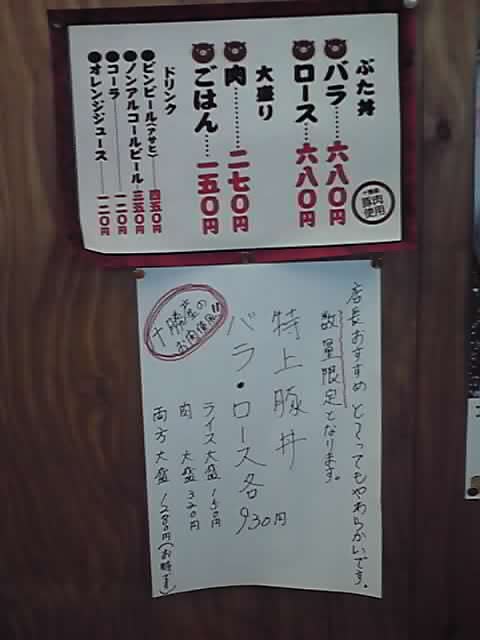 ぶた丼
バラ……六八〇円
ロース…六八〇円
豚肉
使用
大盛り
肉………二七〇円
ごはん……一五〇円
ドリンク
●ビンビール(アサヒ)…四五〇円
●ノンアルコールビール…三五〇円
●コーラ…………一二〇円
●オレンジジュース……一二〇円
店長おすすめ とってもやわらかいです。
数量限定となります。
特上豚丼
バラ・ロース各930円
十勝産の
お肉使用!!
ライス大盛150円
肉 大盛320円
両方大盛1280円(お得です)